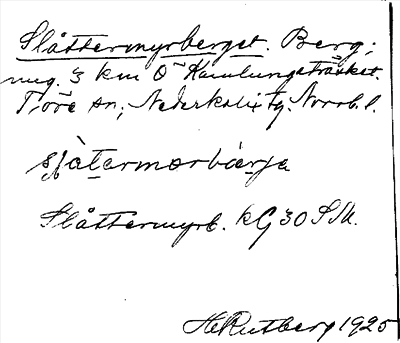 Slåttermyrberget. Berg;
ung. 3 km O Kamlungeträsket.
Töre sn; Nederkalix tg. Norrb. l.
Slåttermyrb. kG 30 SV.
H Rutberg 1925